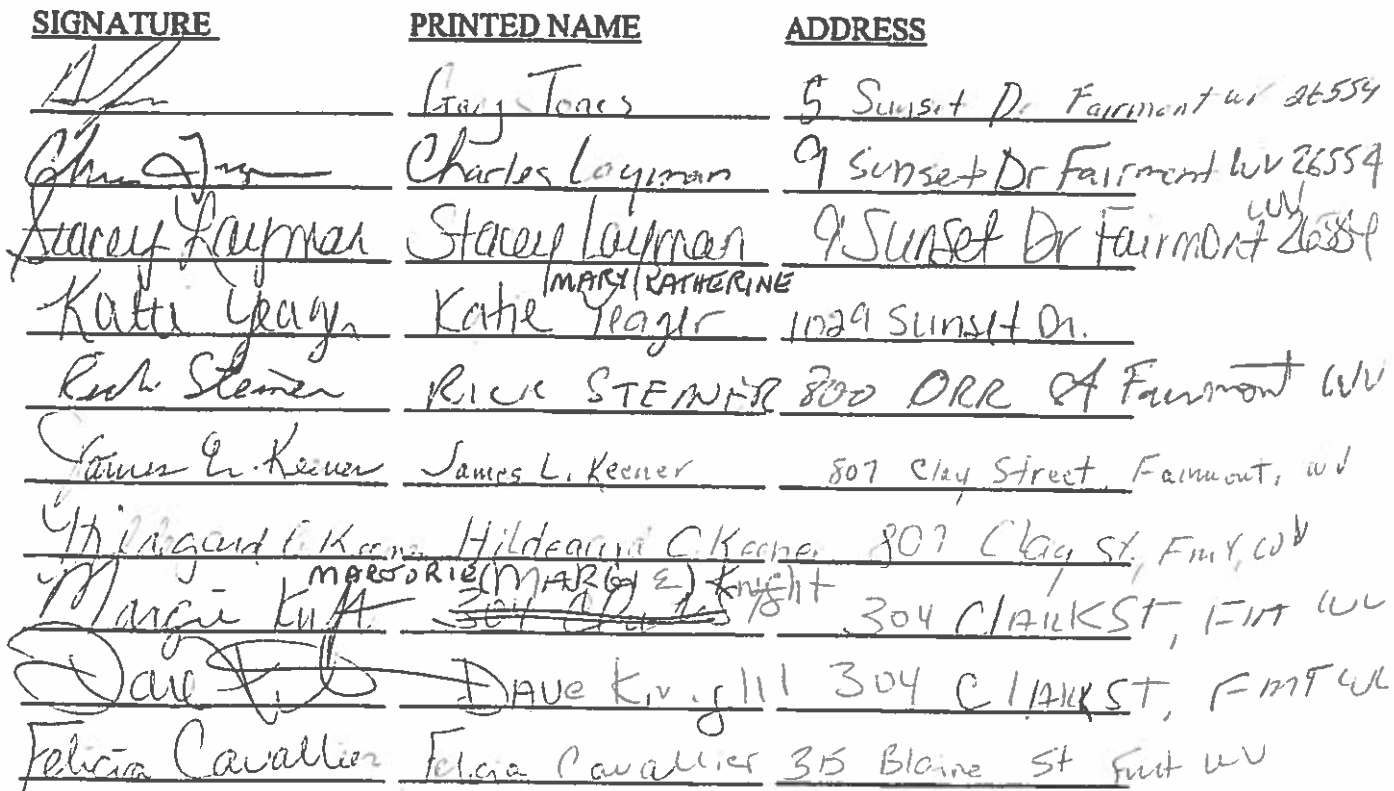 SIGNATURE PRINTED NAME ADDRESS
Gary Jones 5 Sunset Dr Fairmont WV 26554
Charles Layman 9 Sunset Dr Fairmont WV 26554
Stacey Layman Stacey Layman 9 Sunset Dr Fairmont WV 26554
MARY KATHERINE
Katie Yeager Katie Yeager 1029 Sunset Dr.
Rick Steiner RICK STEINER 800 ORR St Fairmont WV
James L. Keener James L. Keener 807 Clay Street, Fairmont, WV
C Keener 807 Clay St, Fmt, WV
MARJORIE (MARGIE) Knight
Margie 304 ClARK ST, FMT WV
Dave DAVE 304 ClARK ST, FMT WV
Felicia Cavallier Felicia Cavallier 315 Blaine St Fmt WV